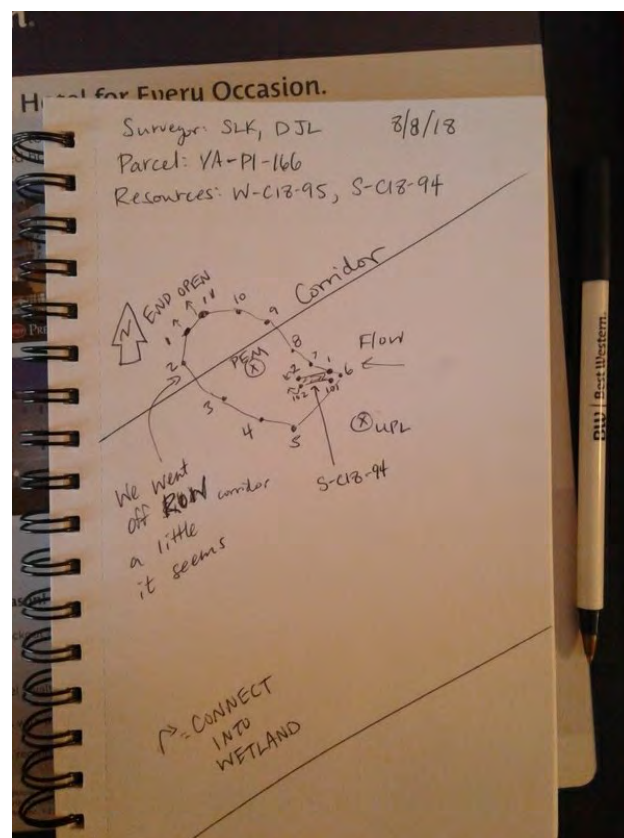 for Every Occasion.
Surveyor: SLK, DJL 8/8/18
Parcel: VA-PI-166
Resources: W-C18-95, S-C18-94
Corridor
N
END OPEN
11
10
9
1
8
Flow
PEM
7
1
2
6
2
3
102
101
4
5
UPL
S-C18-94
We went
off ROW corridor
a little
it seems
= CONNECT
INTO
WETLAND
BW | Best Western.